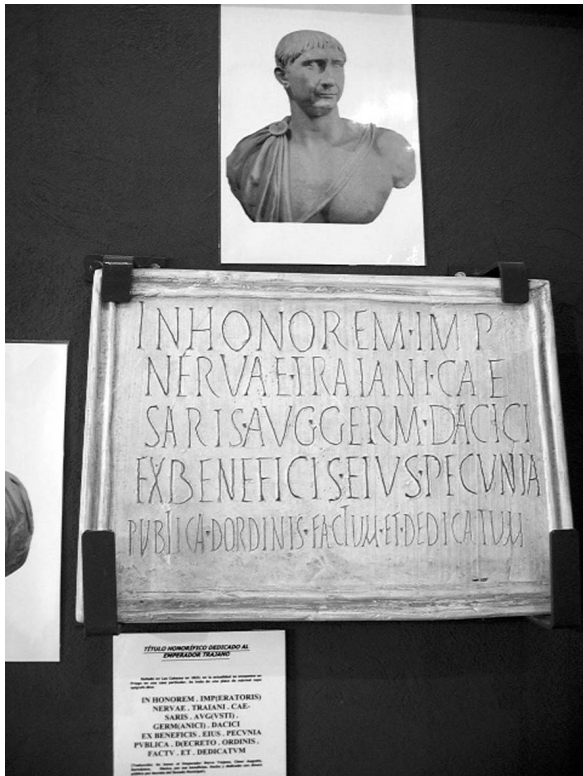 INHONOREM·IMP
NERVAE·TRAIANI·CAE
SARIS·AVG·GERM·DACICI
EXBENEFICIS·EIVS·PECVNIA
PVBLICA·D·ORDINIS·FACTUM·ET·DEDICATUM
TÍTULO HONORÍFICO DEDICADO AL
EMPERADOR TRAJANO
IN HONOREM . IMP(ERATORIS)
NERVAE . TRAIANI . CAE-
SARIS . AVG(VSTI) .
GERM(ANICI) . DACICI
EX BENEFICIS . EIUS . PECVNIA
PVBLICA . D(ECRETO . ORDINIS .
FACTV . ET . DEDICATVM